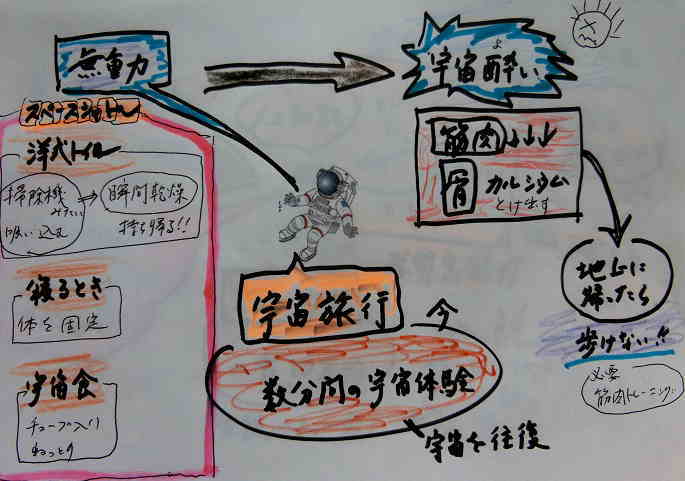 無重力
宇宙酔い
よ
筋肉↓↓↓
骨 カルシウム
とけ出す
地上に
帰ったら
歩けない!!
必要
筋肉トレーニング
スペースシャトル
洋式トイレ
掃除機
みたい
吸い込む
⇒
瞬間乾燥
持ち帰る!!
寝るとき
体を固定
宇宙食
チューブ入り
ねっとり
宇宙旅行
今
数分間の宇宙体験
宇宙を往復